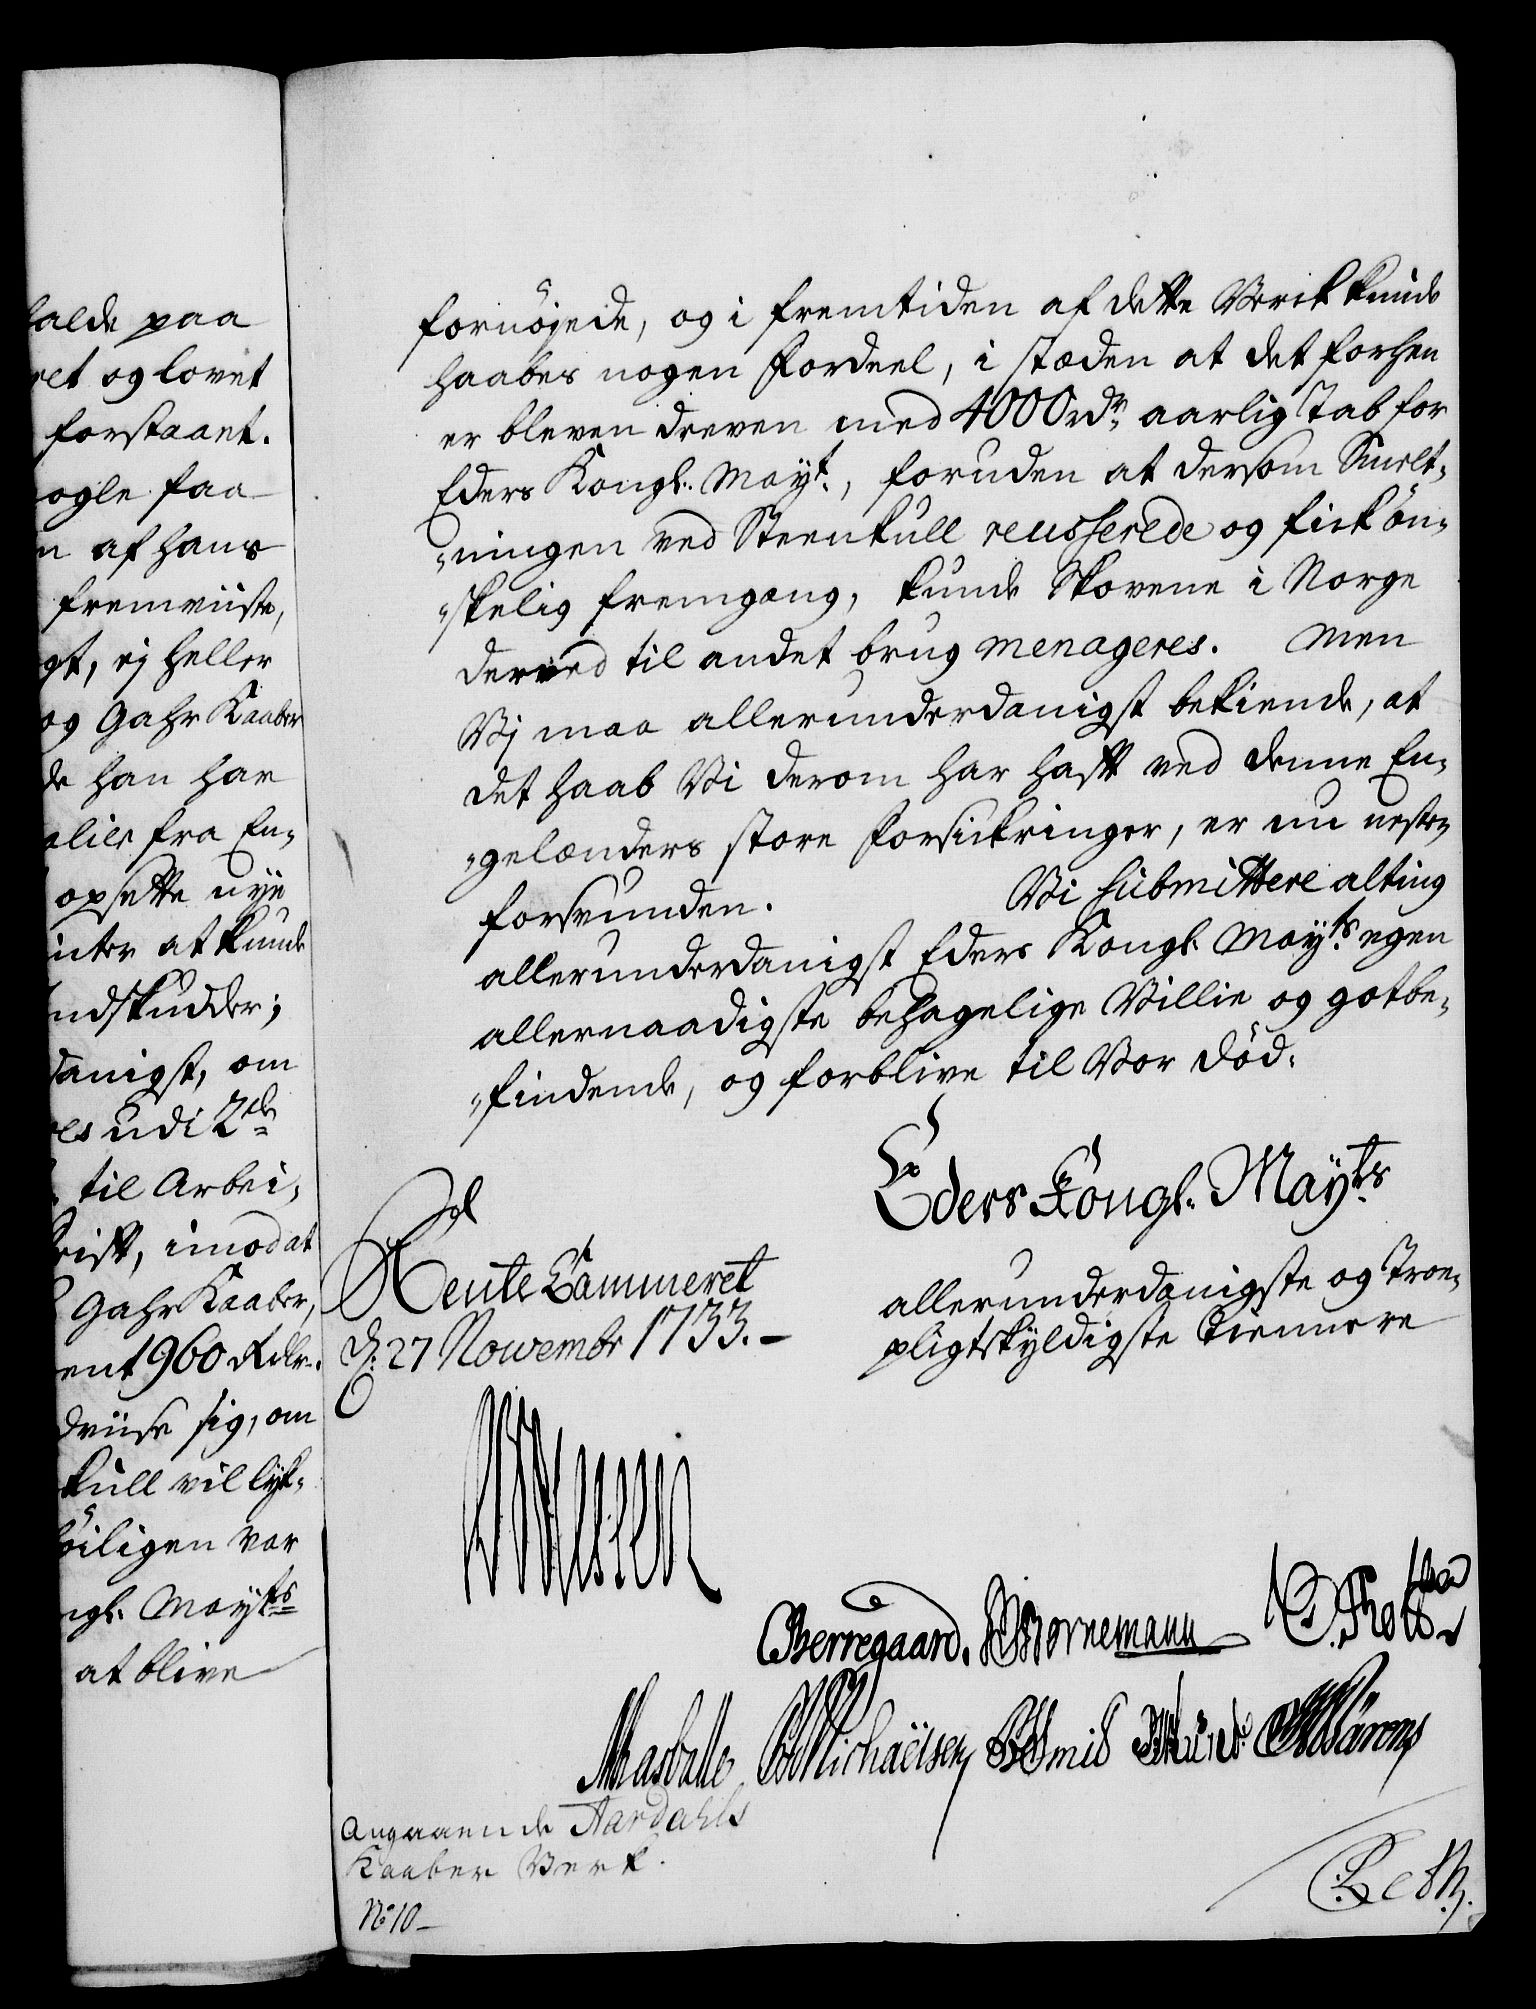 falde paa
ret og lovet
forstaaet.
ogle faa
n af hans
fremviiste,
gt, ej heller
og Gahr Kaaber
de han har
alier fra En-
opsette nye
inter at kunde
ndskudder;
danigst, om
es udi 2de
til Arbei-
krift, imod at
Gahr Kaaber,
ent 960 Rdlr.
dviise sig, om
kull vil lyk-
höiligen var
ngl. Mayts
at blive
fornöyede, og i fremtiden af dette Verik kunde
haabes nogen Fordeel, i stæden at det forhen
er bleven dreven med 4000 rdr aarlig Tab for
Eders Kongl. Mayt., foruden at dersom Smelt-
"ningen ved Steenkull reusserede og fick ön-
"skelig fremgang, kunde Skovene i Norge
derved til andet brug menageres. Men
Vj maa allerunderdanigst bekiende, at
det haab Vi derom har hafft ved denne En-
"gelænders store Forsickringer, er nu nesten
forsvunden. Vi submittere alting
allerunderdanigst Eders Kongl. Mayts egen
allernaadigste behagelige Villie og gotbe-
"findende, og forblive til Vor Död.
Eders Kongl. Mayts
Rente Cammeret
d. 27 Novembr 1733.
allerunderdanigste og Troe-
pligtskyldigste Tiennere
CBerregaard. Bornemann O. Thott
Michaëlsen Smid
Angaaende Aardahls
Kaaber Verk.
No 10